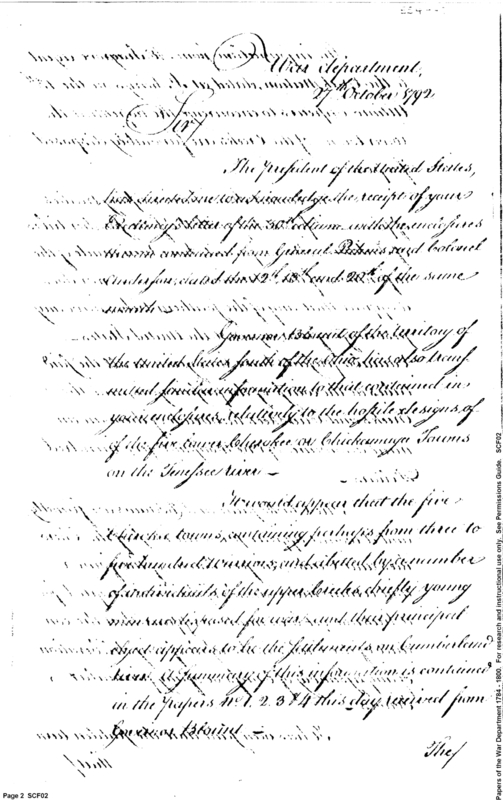 War department,
27th October 1792
Sir,
The President of the United States,
has directed me to acknowledge the receipt of your
Excellency's letter of the 30th ultimo with the enclosures
therein contained from General Pickens and Colonel
Anderson, dated the 12th, 13th and 20th of the same
month
Governor Blount of the territory of
the United States south of the Ohio, has also trans
mitted similar information to that contained in
your enclosures, relatively to the hostile designs of
of the five lower Cherokee or Chickamaga Towns
on the Tenessee river —
It would appear that the five
Cherokee towns, containing perhaps from three to
five hundred Warriors, and abetted by a number
of individuals of the upper Creeks, chiefly young
men are disposed for war, and their principal
object appears to be the settlements on Cumberland
river. A summary of this information is contained
in the papers No 1. 2. 3 & 4 this day received from
Governor Blount —
The
Page 2 SCF02
Papers of the War Department 1784 - 1800. For research and instructional use only. See Permissions Guide. SCF02